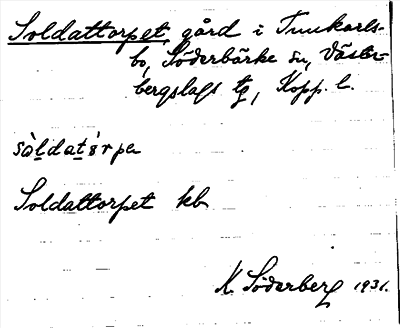 Soldattorpet, gård i Tunkarls-
bo, Söderbärke sn, Väster-
bergslags tg, Kopp. l.
sòldats̀rpe
Soldattorpet kb
K. Söderberg 1931.